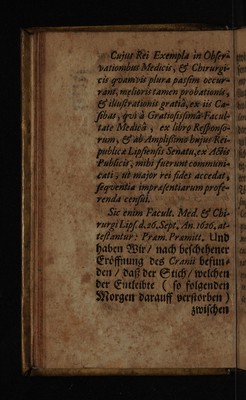 Cujus Rei Exempla in Obser-
vationibus Medicis, & Chirurgi-
cis quamvis plura passim occur-
rant, melioris tamen probationis,
& illustrationis gratiâ, ex iis Ca-
sibus, qui à Gratiosissimâ Facul-
tate Medicâ, ex libro Responso-
rum, & ab Amplissimo hujus Rei-
publicæ Lipsiensis Senatu, ex Actis
Publicis, mihi fuerunt communi-
cati, ut major rei fides accedat,
seqventia impræsentiarum profe-
renda censui.
Sic enim Facult. Med. & Chi-
rurgi Lips. d. 26. Sept. An. 1626. at-
testantur: Præm. Præmitt. Und
haben Wir / nach beschehener
Eröffnung des Cranii befun-
den / daß der Stich / welchen
der Entleibte ( so folgenden
Morgen darauff verstorben )
zwischen